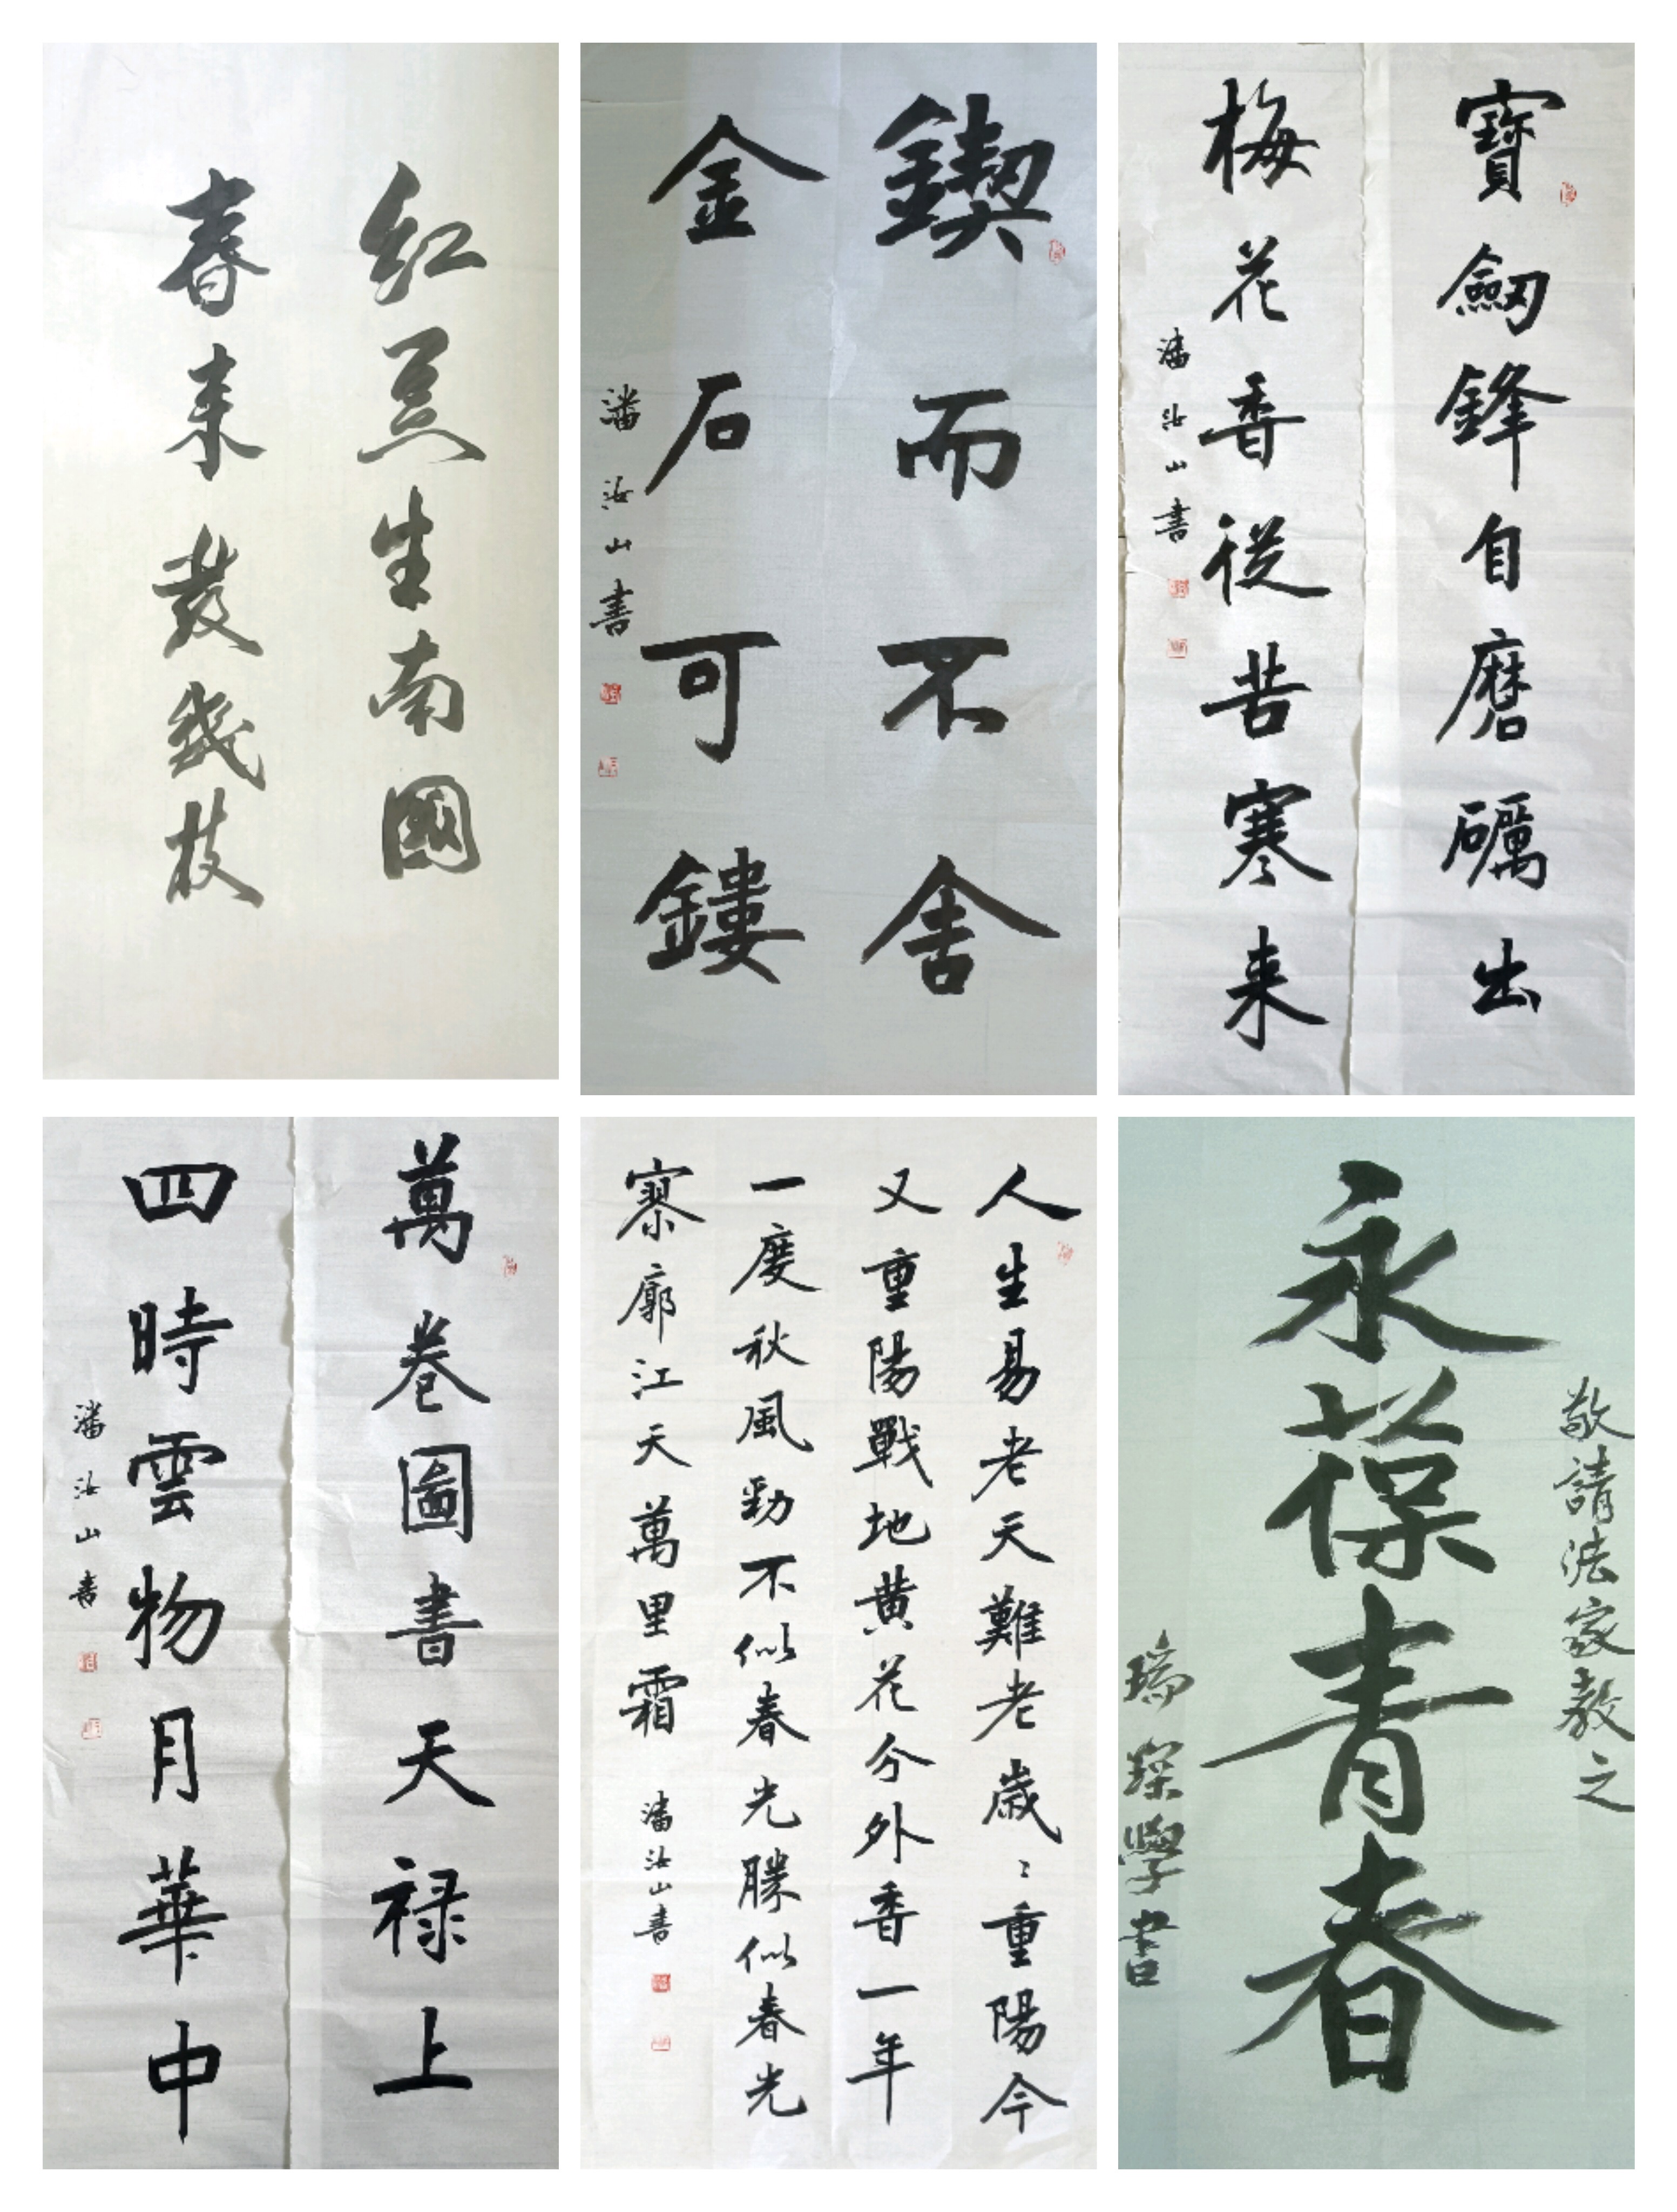 紅豆生南國
春来發幾枝
鍥而不舍
金石可鏤
潘汝山書
寶劔鋒自磨礪出
梅花香從苦寒来
潘汝山書
萬卷圖書天禄上
四時雲物月華中
潘汝山書
人生易老天難老歲〻重陽今
又重陽戰地黄花分外香一年
一度秋風勁不似春光勝似春光
寥廓江天萬里霜
潘汝山書
敬請法家教之
永葆青春
瑞琛學書